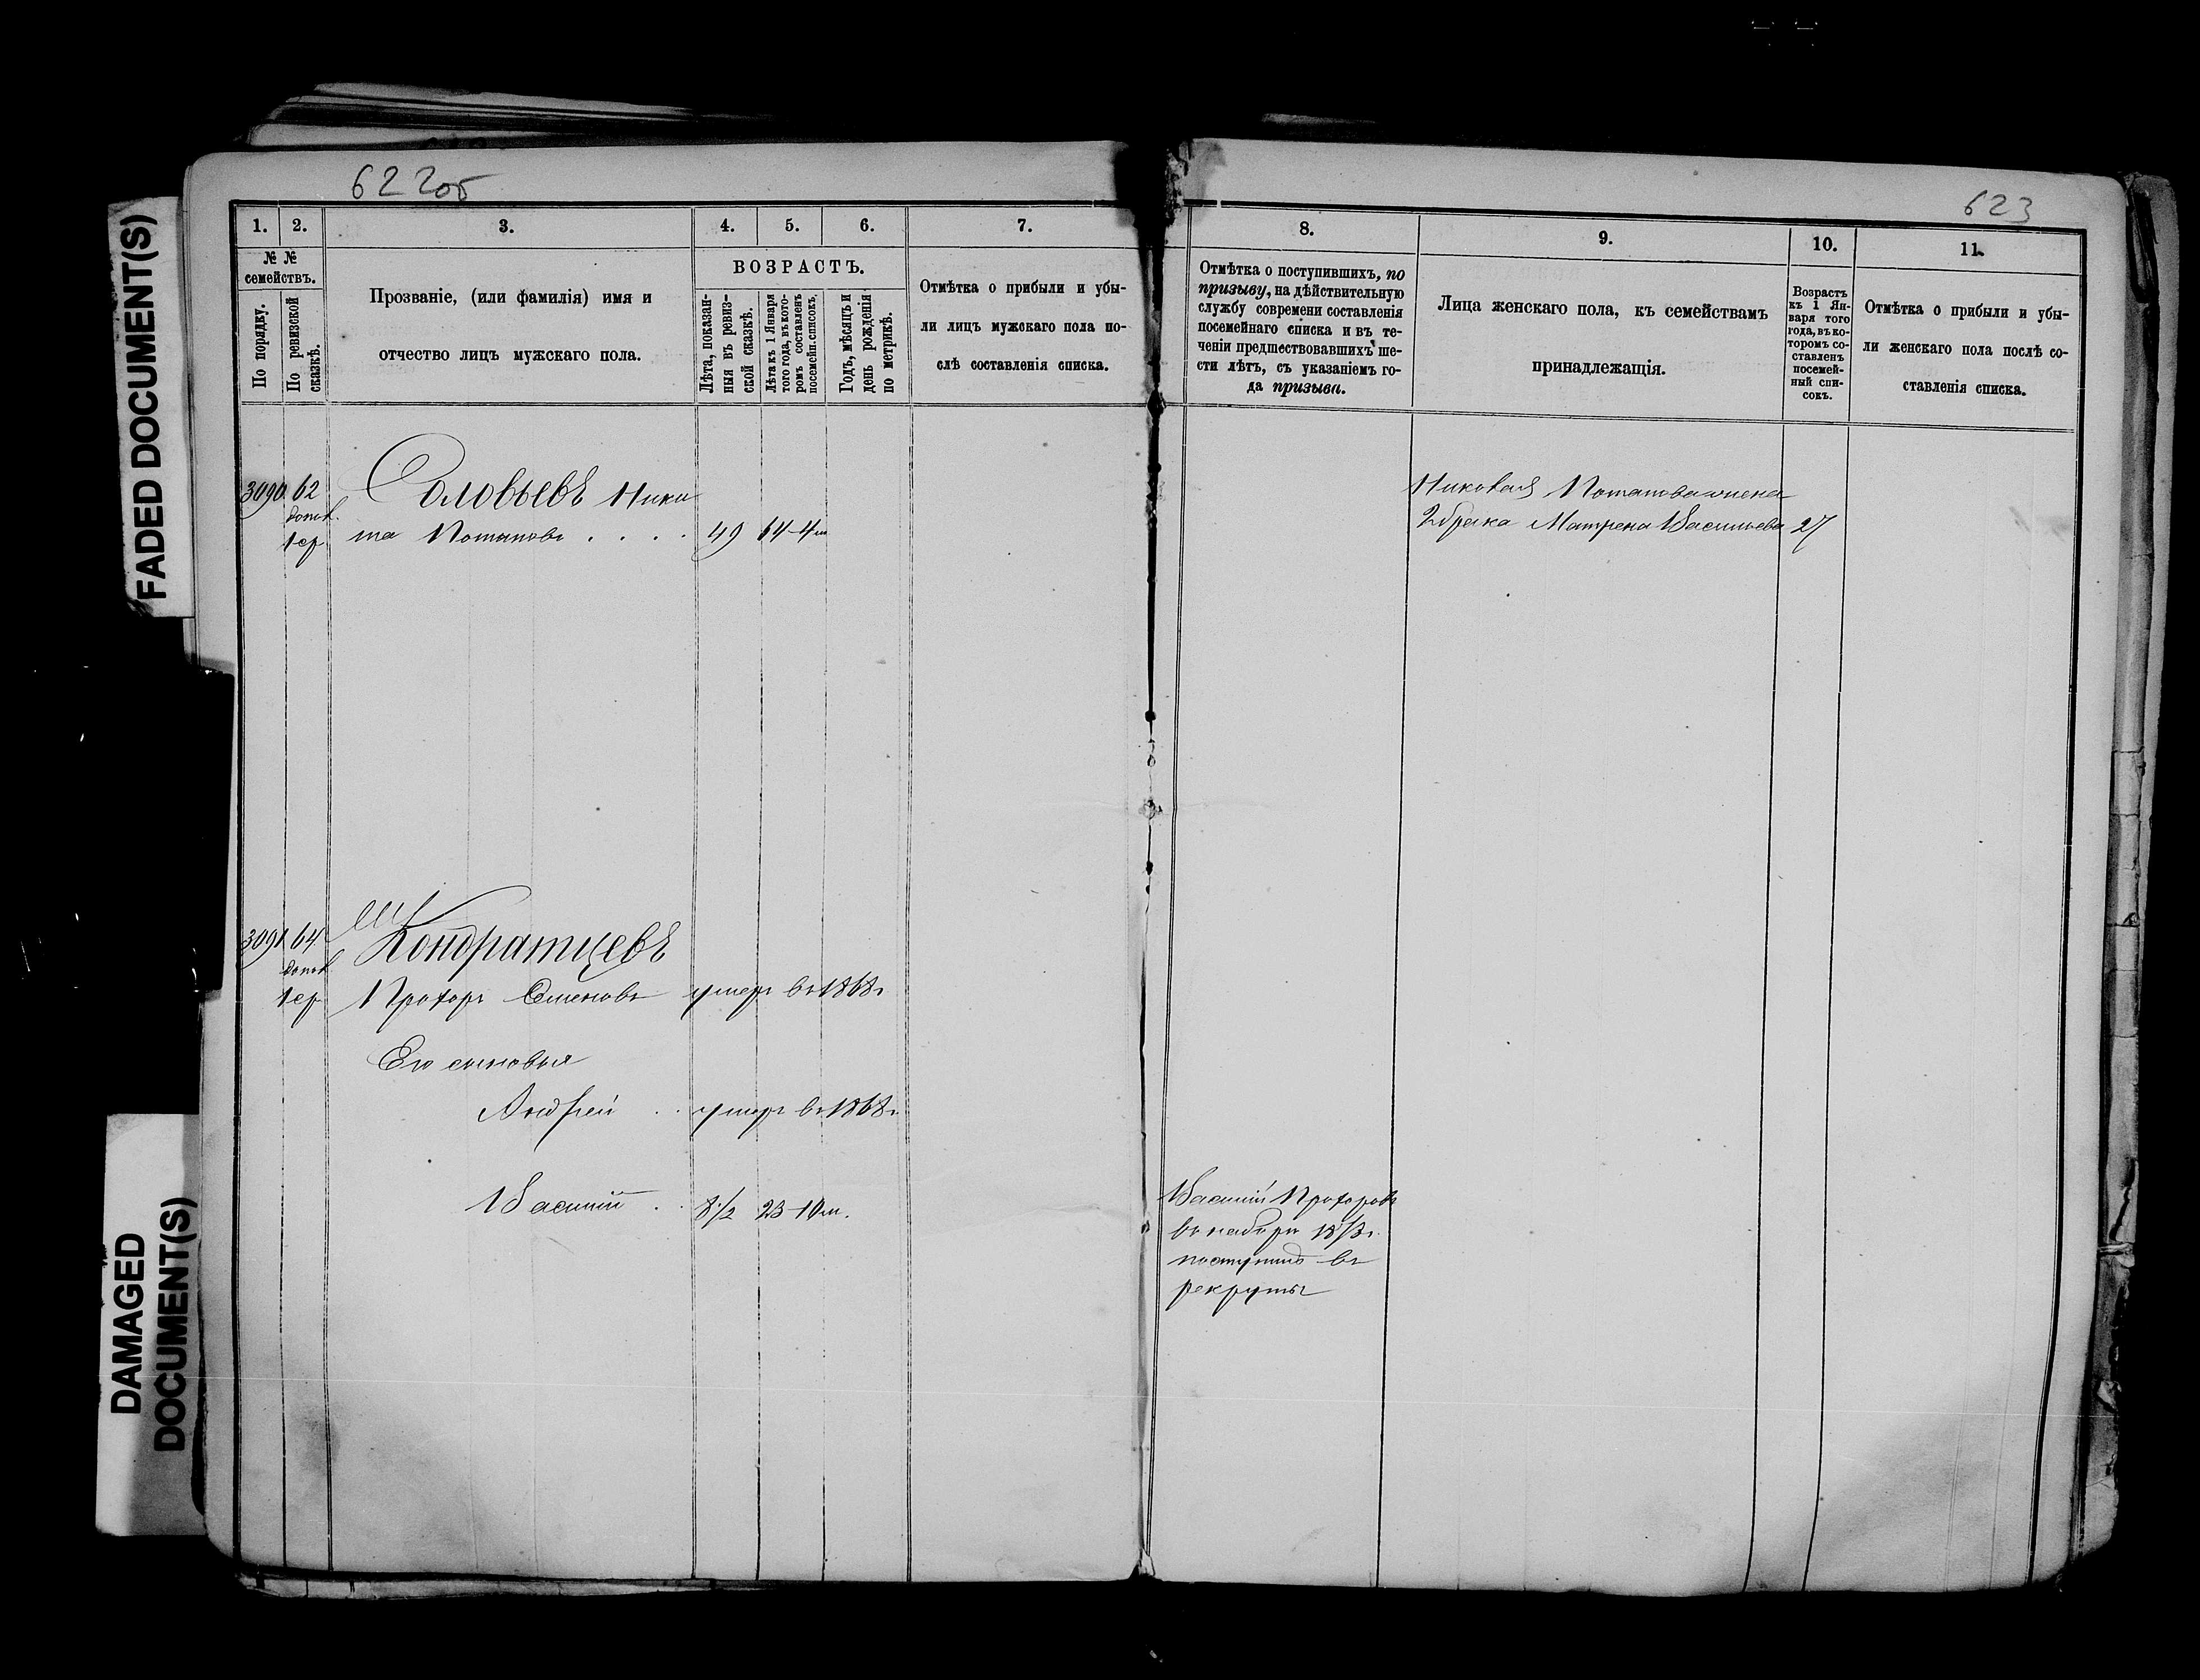 622об
623
FADED DOCUMENT(S)
DAMAGED
DOCUMENT(S)
1.
2.
3.
4.
5.
6.
7.
8.
9.
10.
11.
№ №
семействъ.
По порядку.
По ревизской
сказкѣ.
Прозваніе, (или фамилія) имя и
отчество лицъ мужскаго пола.
ВОЗРАСТЪ.
Лѣта, показан-
ныя въ ревиз-
ской сказкѣ.
Лѣта къ 1 Января
того года, въ кото-
ромъ составленъ
посемейн. списокъ.
Годъ, мѣсяцъ и
день рожденія
по метрикѣ.
Отмѣтка о прибыли и убы-
ли лицъ мужскаго пола по-
слѣ составленія списка.
Отмѣтка о поступившихъ, по
призыву, на дѣйствительную
службу современи составленія
посемейнаго списка и въ те-
ченіи предшествовавшихъ ше-
сти лѣтъ, съ указаніемъ го-
да призыва.
Лица женскаго пола, къ семействамъ
принадлежащія.
Возрастъ
къ 1 Ян-
варя того
года, въ ко-
торомъ со-
ставленъ
посемей-
ный спи-
сокъ.
Отмѣтка о прибыли и убы-
ли женскаго пола послѣ со-
ставленія списка.
3090 62 Соловьевъ Ники
та Потаповъ . . . . 49 64-4м
Потапова жена
2 брака Матрена Васильева 27
3091 64 Кондратцевъ
Прохоръ Семеновъ умеръ въ 1868г
Его сыновья
Андрей . . умеръ въ 1868г.
Василій . . 8 1/2 23-10м.
Василій Прохоровъ
въ наборъ 1873г.
поступилъ въ
рекруты